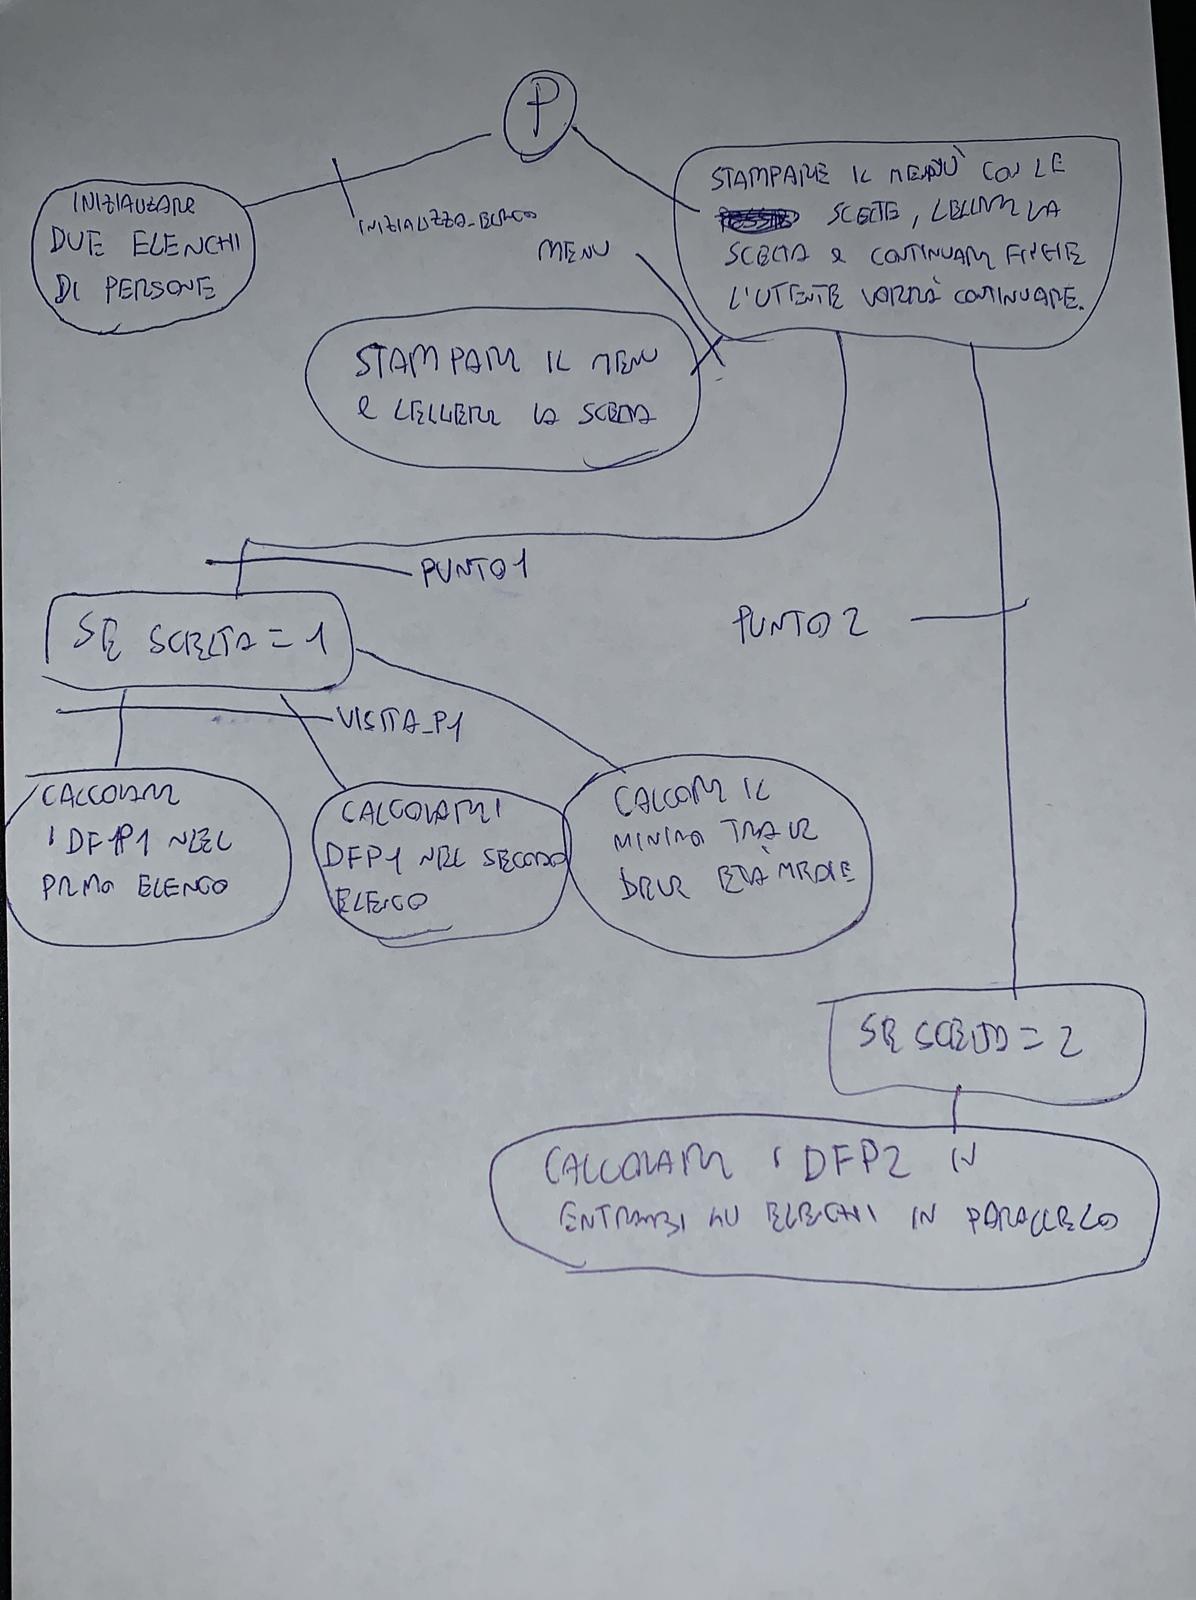 P
INIZIALIZZARE
DUE ELENCHI
DI PERSONE
INIZIALIZZA_ELENCO
MENU
STAMPARE IL MENÙ CON LE
SCELTE, LEGGERE LA
SCELTA E CONTINUARE FINCHE
L'UTENTE VORRÀ CONTINUARE.
STAMPARE IL MENU
E LEGGERE LA SCELTA
PUNTO1
SE SCELTA = 1
PUNTO 2
VISITA_P1
CALCOLARE
I DFP1 NEL
PRIMO ELENCO
CALCOLARE I
DFP1 NEL SECONDO
ELENCO
CALCOLARE IL
MINIMO TRA LE
DUE ETÀ MEDIE
SE SCELTA = 2
CALCOLARE I DFP2 IN
ENTRAMBI GLI ELENCHI IN PARALLELO